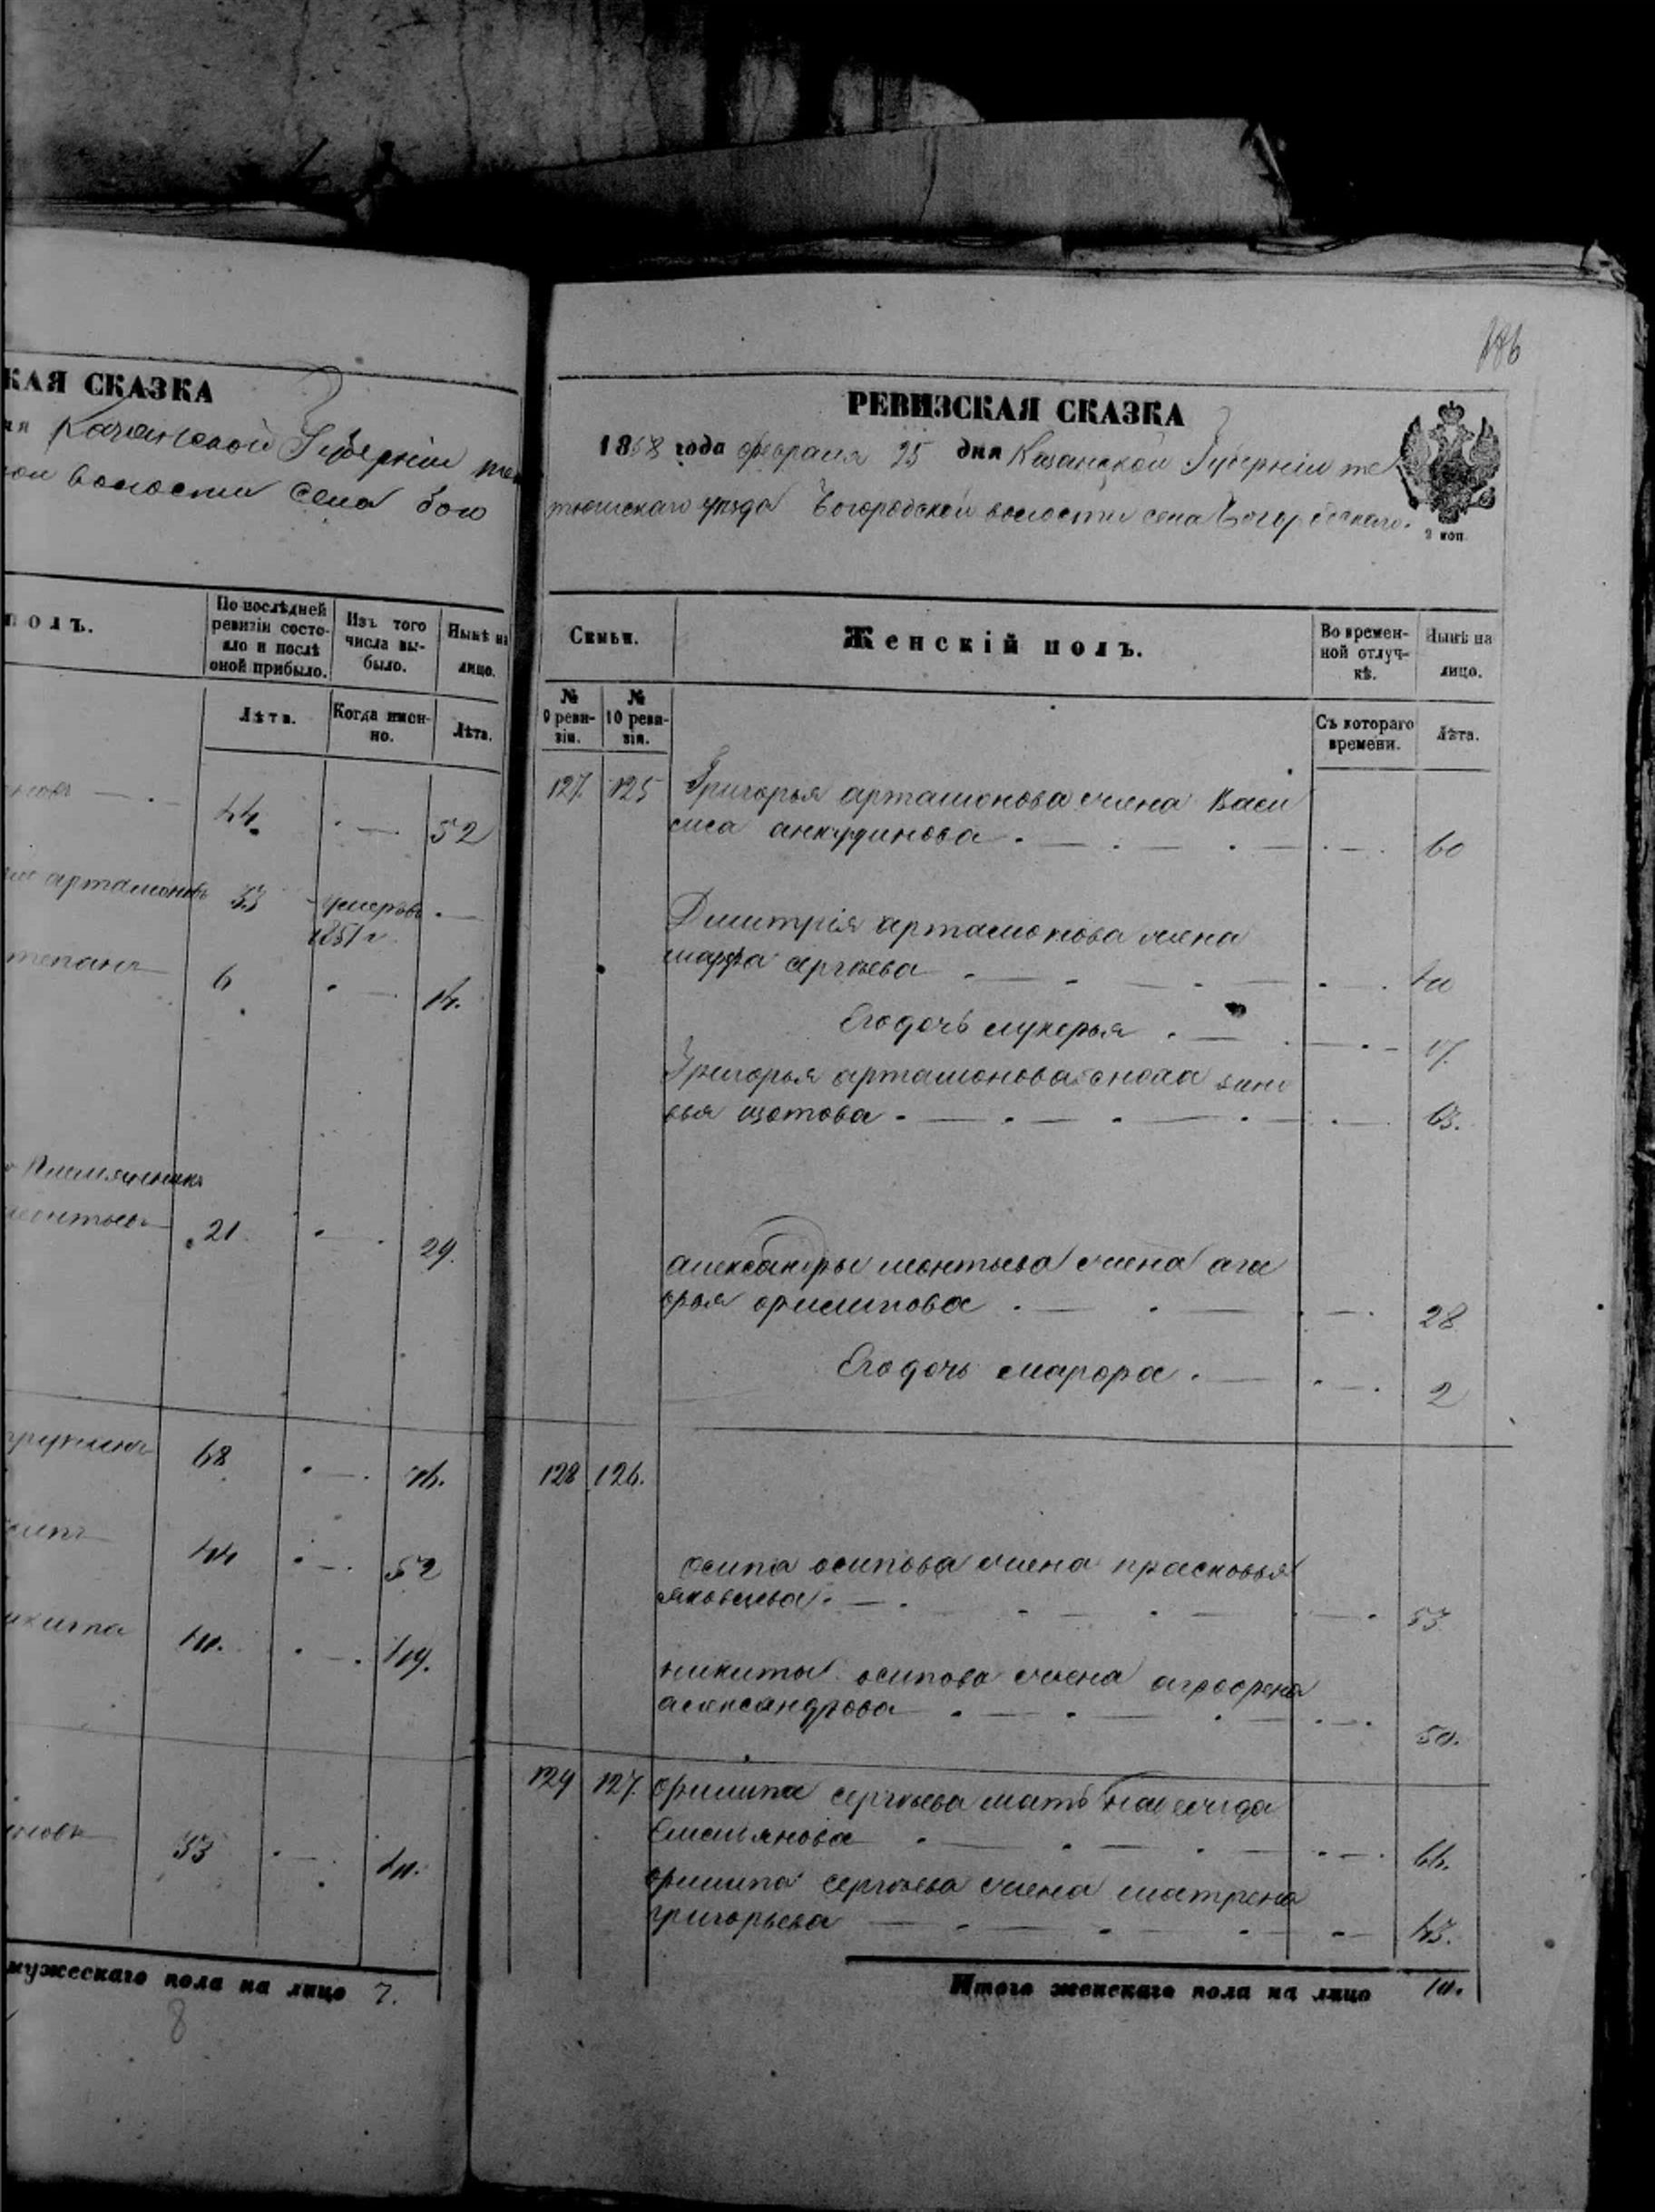 КАЯ СКАЗКА
ня Казанской Губерніи те
ой волости села Бого
полъ.
По послѣдней ревизіи состо-
яло и послѣ оной прибыло.
Изъ того числа вы-
было.
Нынѣ на лицо.
Лѣта.
Когда имен-
но.
Лѣта.
44. 52
артамоновъ 33 умеръ
1851 г.
степанъ 6 14.
племянникъ
леонтьевъ 21 29.
68 76.
44 52
никита 41. 49.
33 41.
мужескаго пола на лицо 7.
8
186
РЕВИЗСКАЯ СКАЗКА
1858 года февраля 25 дня Казанской Губерніи те
тюшскаго уѣзда Богородской волости села Богородскаго.
2 коп.
Семьи.
Женскій полъ.
Во времен-
ной отлуч-
кѣ.
Нынѣ на
лицо.
№
9 реви-
зіи.
№
10 реви-
зіи.
Съ котораго
времени.
Лѣта.
127. 125 Григорья артамонова жена Васи
лиса анкудинова 60
Дмитрія артамонова жена
марфа сергѣева 40
Его дочь лукерья 17.
Григорья артамонова сноха зино
вья изотова 63.
александры леонтьева жена ага
фья филипова 28
Его дочь марфа 2
128 126.
осипа осипова жена прасковья
яковлева 53
никиты осипова жена агрофена
александрова 50.
129 127. филипа сергѣева мать
Емельянова 66.
филипа сергѣева жена матрена
григорьева 43.
Итого женскаго пола на лицо 10.